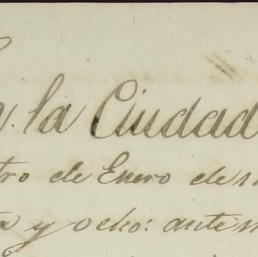 la Ciudad
tro de Enero de
y ocho: ante